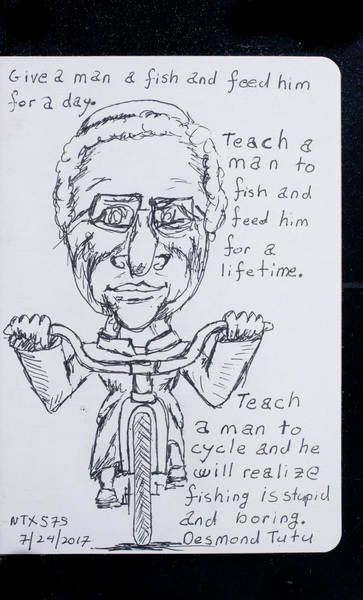 Give a man a fish and feed him
for a day.
Teach a
man to
fish and
feed him
for a
lifetime.
Teach
a man to
cycle and he
will realize
fishing is stupid
and boring.
Desmond Tutu
NTXS75
7/24/2017